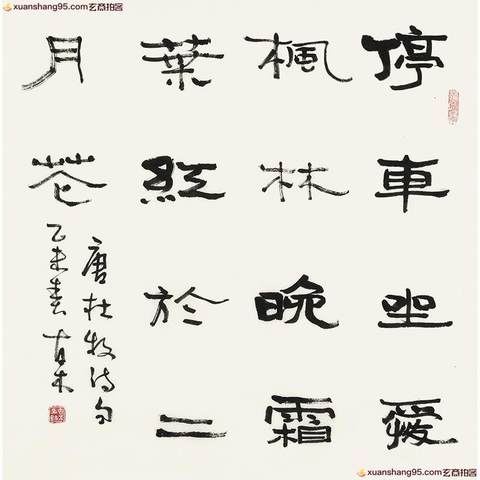 xuanshang95.com玄商拍客
停車坐愛
楓林晚霜
葉紅於二
月花
唐杜牧诗句
乙未春
xuanshang95.com玄商拍客